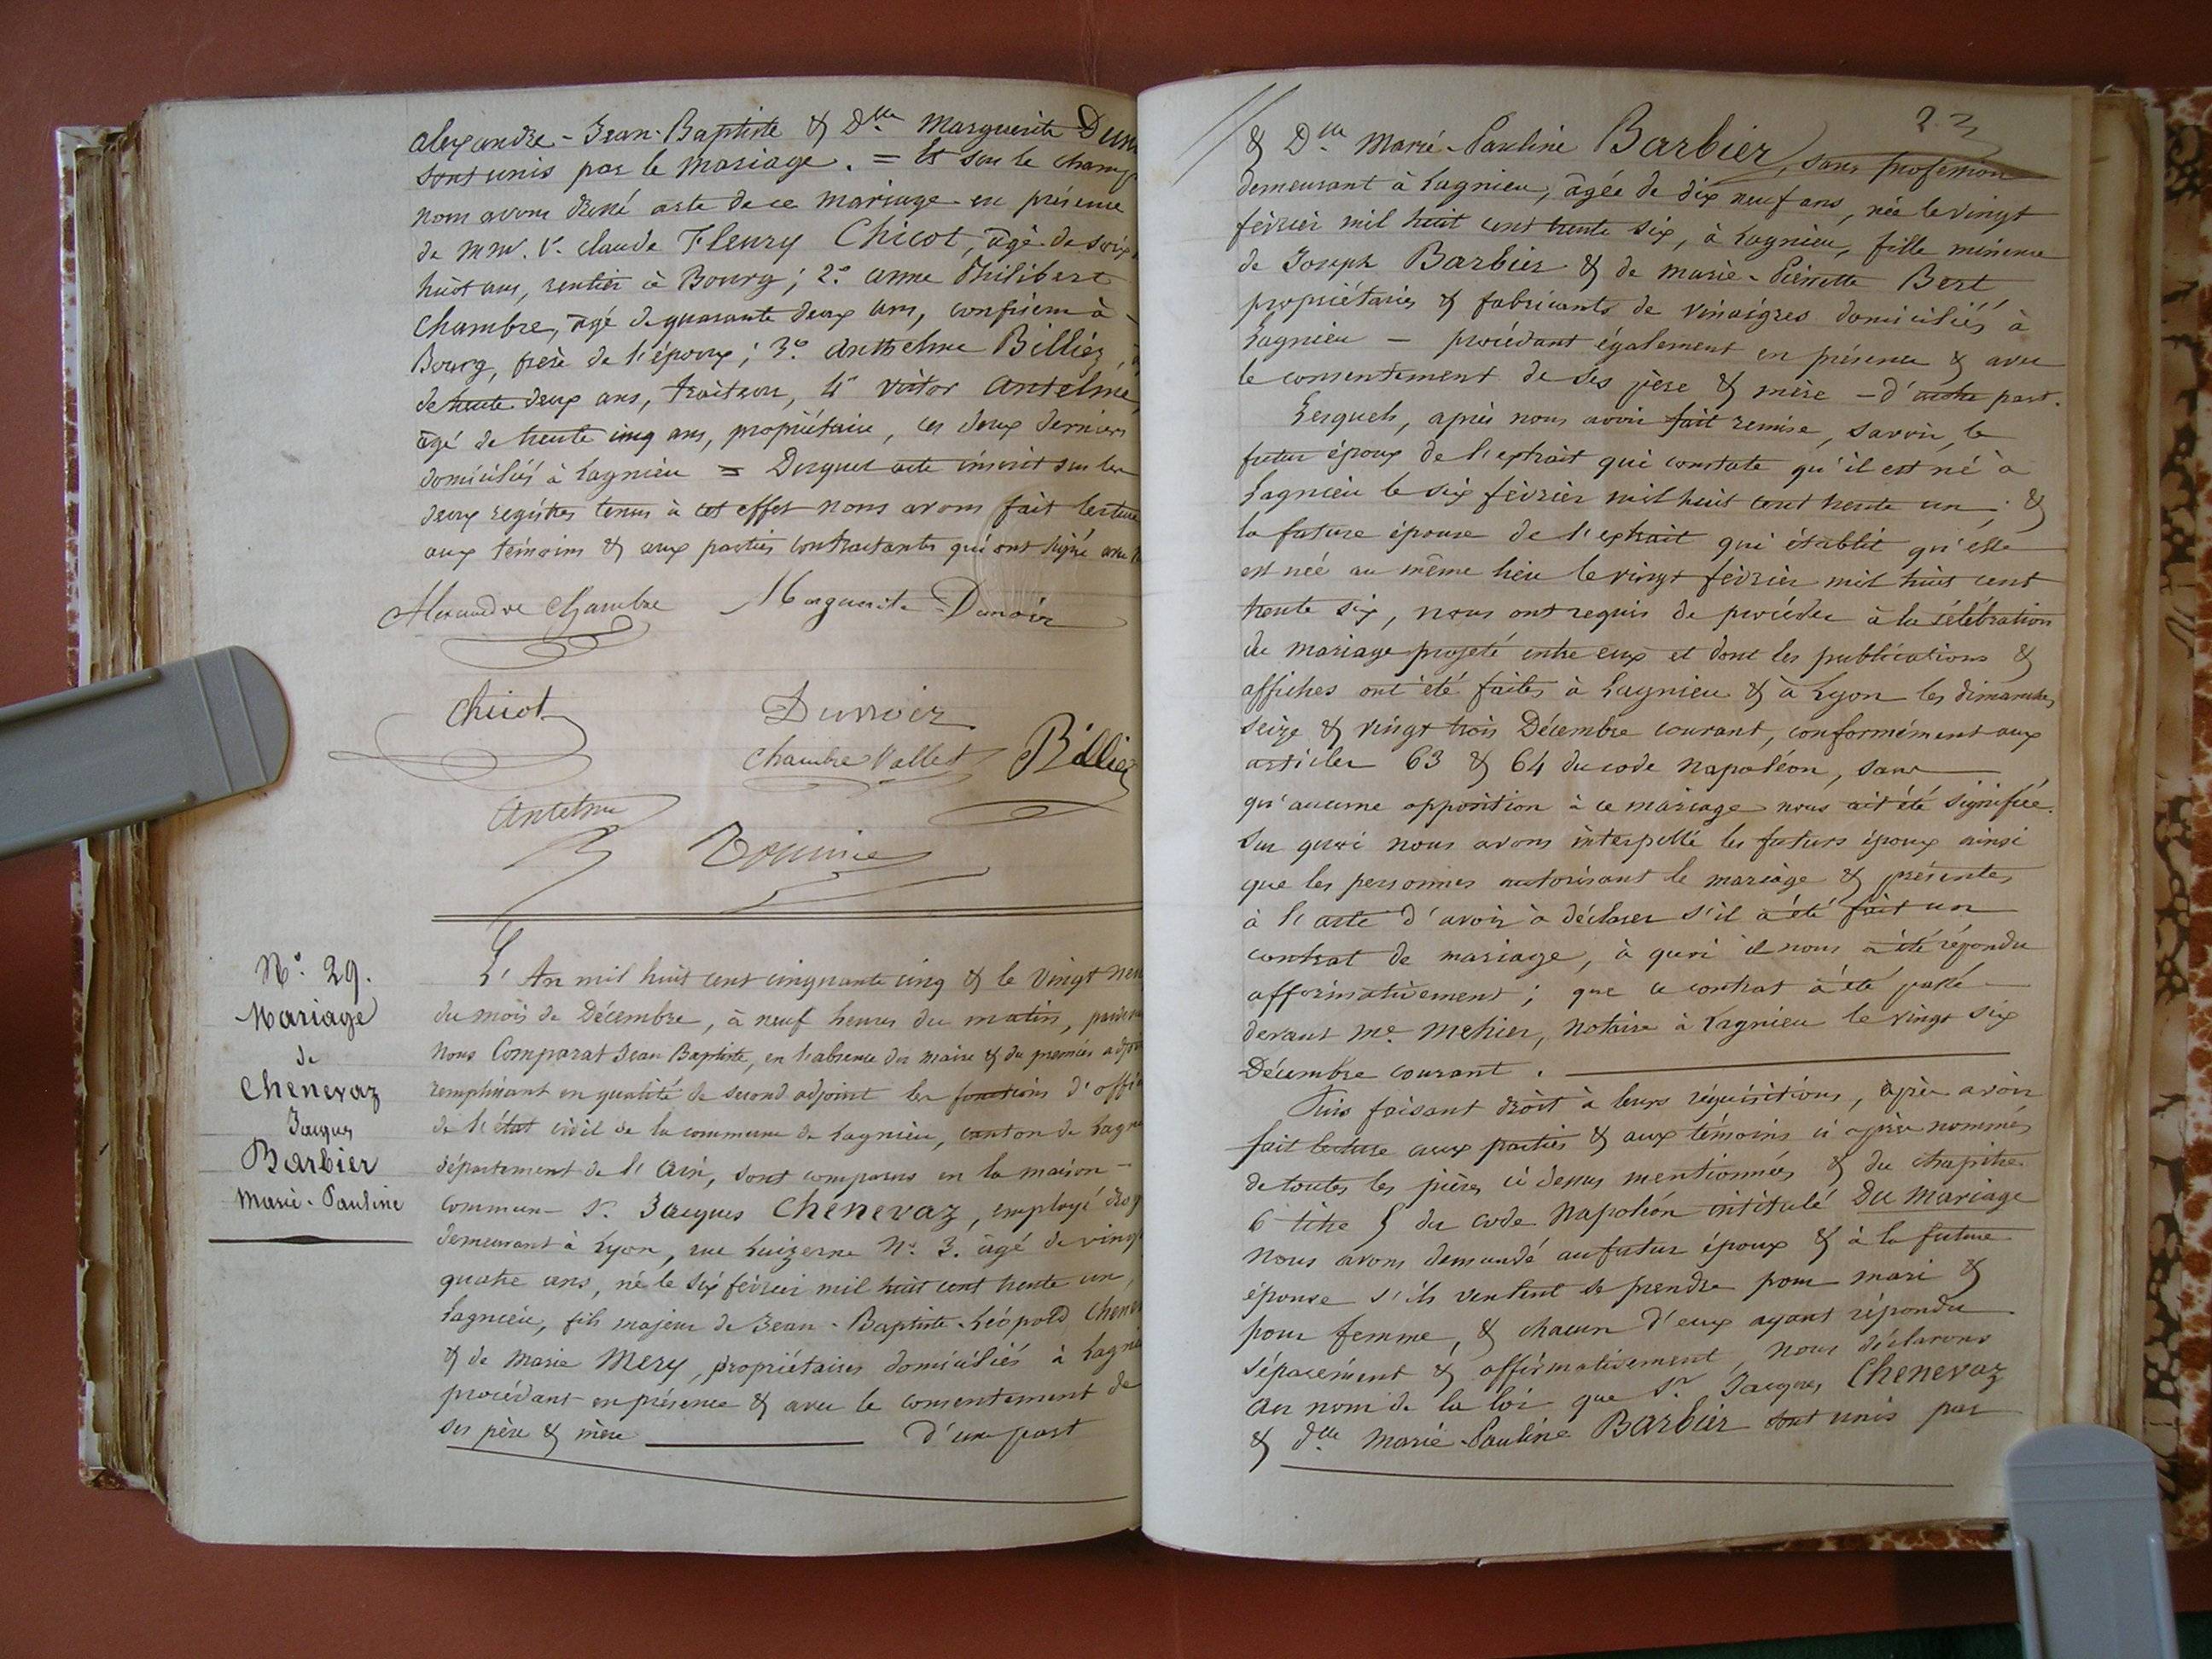 alexandre-Jean-Baptiste & Dlle Marguerite
sont unis par le mariage. = Et sur le champ
nous avons dressé acte de ce mariage en présence
de MM. 1° Claude Fleury Chicot, âgé de
huit ans, rentier à Bourg; 2° anne Philibert
Chambre, âgé de quarante deux ans, confiseur à
Bourg, frère de l'époux; 3° Anthelme Billiez,
de trente deux ans, traiteur, 4° victor Antelme,
âgé de trente cinq ans, propriétaire, ces deux derniers
domiciliés à Lagnieu = Duquel acte inscrit sur les
deux registres tenus à cet effet nous avons fait lecture
aux témoins & aux parties contractantes qui ont signé avec
Alexandre Chambre Marguerite
Chicot
Chambre Vallet Billiez
Antelme
N° 29.
Mariage
de
Chenevaz
Jacques
Barbier
Marie-Pauline
L'An mil huit cent cinquante cinq & le vingt neu
du mois de Décembre, à neuf heures du matin, pardevant
Nous Comparat Jean Baptiste, en l'absence du maire & du premier adjoint
remplissant en qualité de second adjoint les fonctions d'officier
de l'état civil de la commune de Lagnieu, canton de Lagnieu
département de l'Ain, sont comparus en la maison
commune Sr. Jacques Chenevaz, employé
demeurant à Lyon, rue Luizerne N° 3. âgé de vingt
quatre ans, né le six février mil huit cent trente un,
Lagnieu, fils majeur de Jean-Baptiste-Léopold Chenev
& de Marie Mery, propriétaires domiciliés à Lagnieu
procédant en présence & avec le consentement de
ses père & mère d'une part
& Dlle Marie-Pauline Barbier, sans profession
demeurant à Lagnieu, âgée de dix neuf ans, née le vingt
février mil huit cent trente six, à Lagnieu, fille mineure
de Joseph Barbier & de marie-Pierrette Bert
propriétaires & fabricants de vinaigres domiciliés à
Lagnieu - procédant également en présence & avec
le consentement de ses père & mère - d'autre part.
Lesquels, après nous avoir fait remise, savoir, le
futur époux de l'extrait qui constate qu'il est né à
Lagnieu le six février mil huit cent trente un; &
la future épouse de l'extrait qui établit qu'elle
est née au même lieu le vingt février mil huit cent
trente six, nous ont requis de procéder à la célébration
du mariage projeté entre eux et dont les publications &
affiches ont été faites à Lagnieu & à Lyon les dimanches
seize & vingt trois Décembre courant, conformément aux
articles 63 & 64 du code Napoléon, sans
qu'aucune opposition à ce mariage nous ait été signifiée.
Sur quoi nous avons interpellé les futurs époux ainsi
que les personnes autorisant le mariage & présentes
à l'acte d'avoir à déclarer s'il a été fait un
contrat de mariage, à quoi il nous a été répondu
affirmativement; que ce contrat a été passé
devant Me Mehier, Notaire à Lagnieu le vingt six
Décembre courant.
Puis faisant droit à leurs réquisitions, après avoir
fait lecture aux parties & aux témoins ci après nommés
de toutes les pièces ci dessus mentionnées & du chapitre
6 titre 5 du code Napoléon intitulé Du Mariage
Nous avons demandé au futur époux & à la future
épouse s'ils veulent se prendre pour mari &
pour femme, & chacun d'eux ayant répondu
séparément & affirmativement, nous déclarons
au nom de la loi que Sr Jacques Chenevaz
& Dlle Marie-Pauline Barbier sont unis par